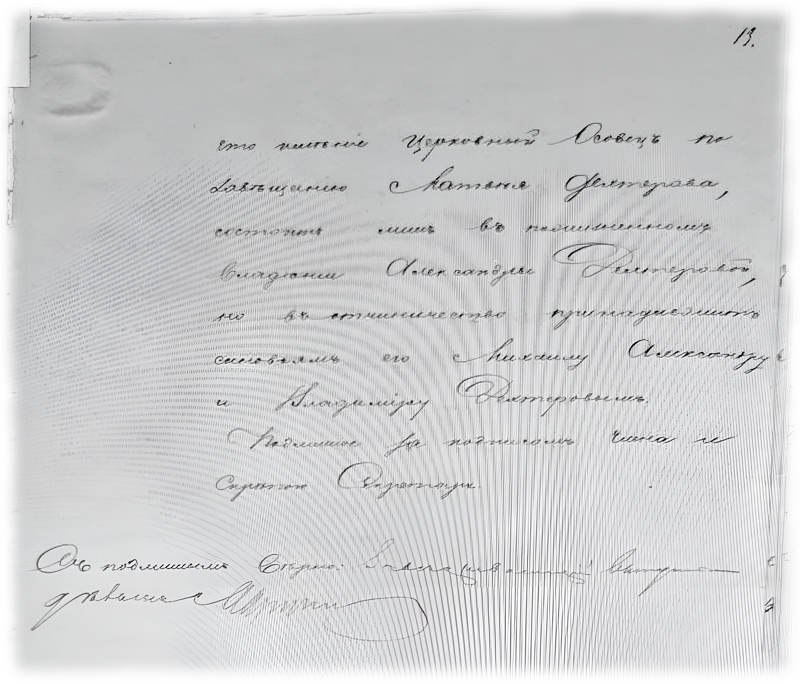 13.
его имѣніе Церковный Осовецъ по
завѣщанію Матвея Дехтерева,
состоитъ лишь въ пожизненномъ
владѣніи Александры Дехтеровой,
но въ отчинничество принадлежитъ
сыновьямъ его Михаилу Александру
и Владиміру Дехтеровымъ.
Подлинное за подписомъ Члена и
скрѣпою Секретаря.
Съ подлиннымъ вѣрно: